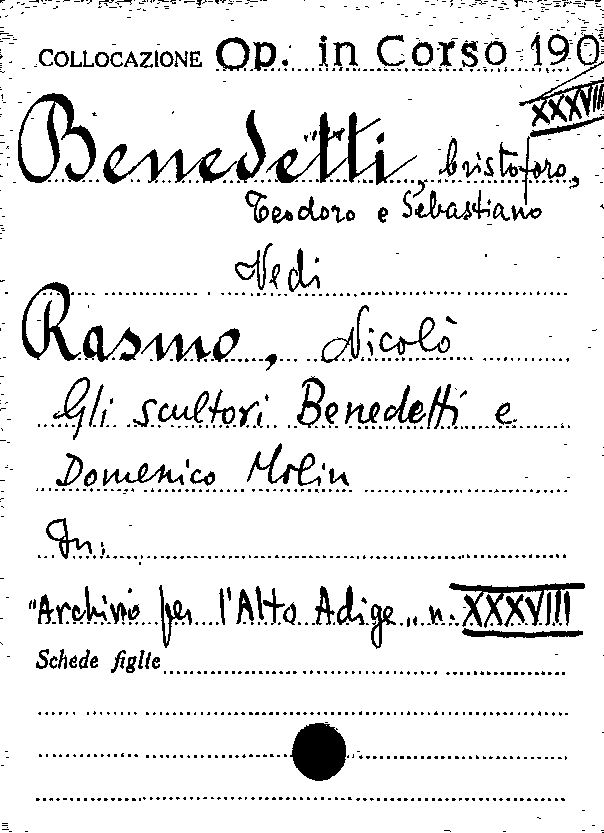 COLLOCAZIONE Op. in Corso 190
XXXVIII
Benedetti, Cristoforo,
Teodoro e Sebastiano
Vedi
Rasmo, Nicolò
Gli scultori Benedetti e
Domenico Molin
In:
"Archivio per l'Alto Adige„ n. XXXVIII
Schede figlie